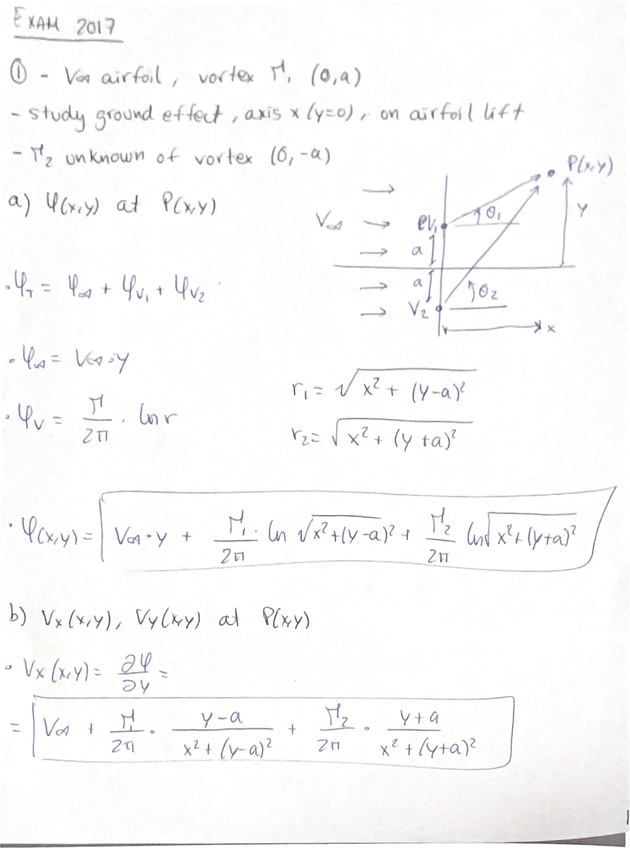 EXAM 2017
① - V∞ airfoil, vortex Γ₁ (0,a)
- study ground effect, axis x (y=0), on airfoil lift
- Γ₂ unknown of vortex (0,-a)
a) Ψ(x,y) at P(x,y)
P(x,y)
V∞
V₁
θ₁
y
a
a
θ₂
V₂
x
· Ψ_T = Ψ∞ + Ψ_V₁ + Ψ_V₂
· Ψ∞ = V∞·y
r₁ = √(x² + (y-a)²)
· Ψ_V = Γ/2π · ln r
r₂ = √(x² + (y+a)²)
· Ψ(x,y) = V∞·y + Γ₁/2π · ln √(x²+(y-a)²) + Γ₂/2π ln √(x²+(y+a)²)
b) Vx(x,y), Vy(x,y) at P(x,y)
· Vx(x,y) = ∂Ψ/∂y =
= V∞ + Γ₁/2π · (y-a)/(x²+(y-a)²) + Γ₂/2π · (y+a)/(x²+(y+a)²)